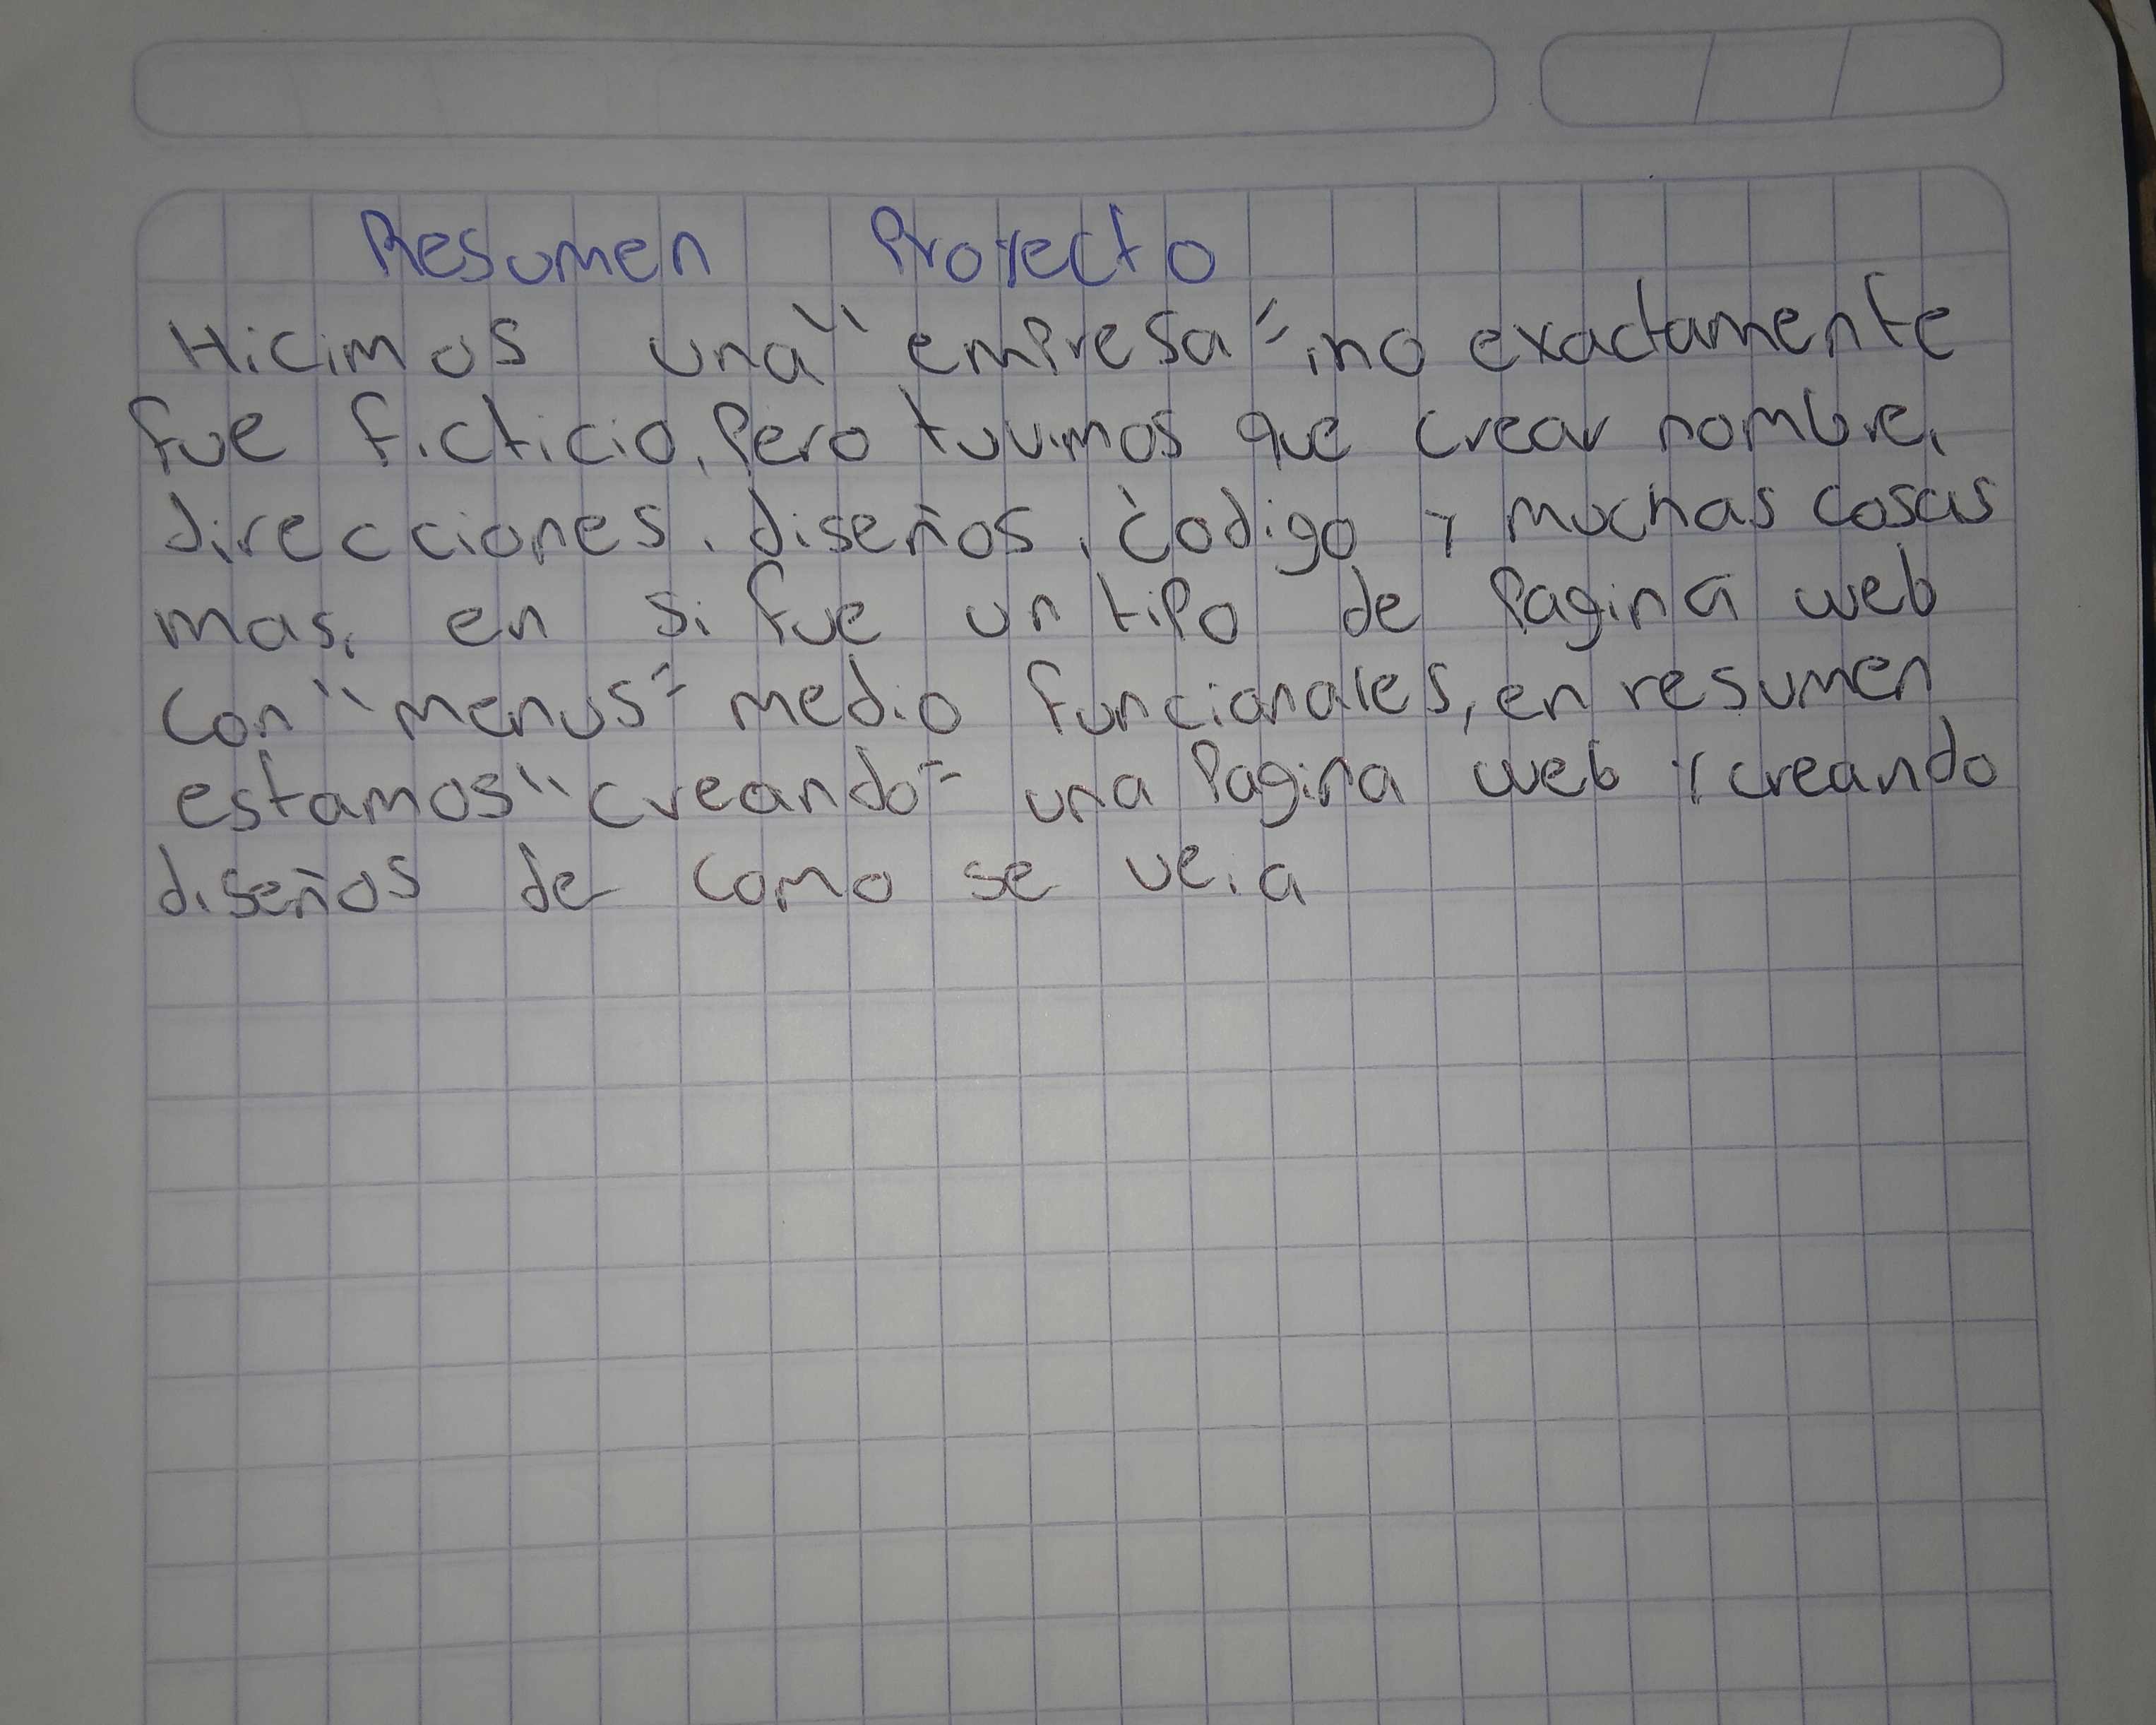 Resumen Proyecto
Hicimos una "empresa", no exactamente
fue ficticio, Pero tuvimos que crear nombre,
direcciones, diseños, codigo y muchas cosas
mas, en si fue un tipo de Pagina web
con "menus" medio funcionales, en resumen
estamos "creando" una Pagina web y creando
diseños de como se veia